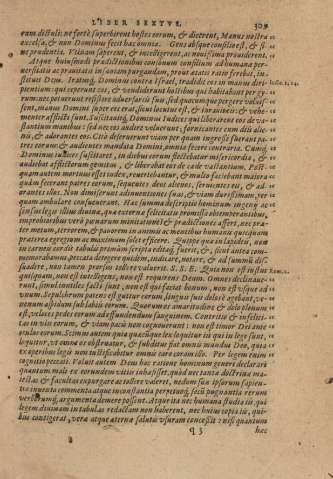 LIBER SEXTVS. 309
eam distuli: ne fortè superbirent hostes eorum, & dicerent, Manus nostra
excelsa, & non Dominus fecit hæc omnia. Gens absque consilio est, & si-
ne prudentia. Vtinam saperent, & intelligerent, ac nouissima prouiderent.
Atque huiusmodi prædictionibus consonum consilium ad humana per-
uersitatis ac prauitatis insaniam purgandam, proui ætatis ratio ferebat, in-
stituit Deus. Iratusque Dominus contra Israel, tradidit eos in manus diri-
Iudic. 2, 14.
pientium: qui ceperunt eos, & vendiderunt hostibus qui habitabant per gy-
rum: nec potuerunt resistere aduersariis suis, sed quocunque pergere voluis-
sent, manus Domini super eos erat, sicut locutus est, & iurauit eis: & vehe-
menter afflicti sunt. Suscitauitque Dominus Iudices qui liberarent eos de va-
stantium manibus: sed nec eos audire voluerunt, fornicantes cum diis alie-
nis, & adorantes eos. Citò deseruerunt viam per quam ingressi fuerant pa-
tres eorum: & audientes mandata Domini, omnia fecere contraria. Cumque
Dominus iudices suscitaret, in diebus eorum flectebatur misericordia, &
audiebat afflictorum gemitus, & liberabat eos de cæde vastantium. Post-
quam autem mortuus esset iudex, reuertebantur, & multo faciebant maiora
quàm fecerant patres eorum, sequentes deos alienos, seruientes eis, & ad-
orantes illos. Non dimiserunt adinuentiones suas, & viam durissimam, per
quam ambulare consueuerant. Hac summa descriptio hominum ingenij ac
sensus legis illius diuinæ, quæ externa felicitate promissa obtemperantibus,
improbioribus verò pœnarum minitationes & prædictiones affert, nec præ-
ter metum, terrorem, & pauorem in animis ac mentibus humanis quidquam
præterea egregium ac maximum solet efficere. Quippe quæ in lapideis, non
in carneo cordis tabulis primùm scripta existens fuerit, &, sicut antea com-
memorabamus, peccata detegere quidem, indicare, notare, & ad summum dis-
suadere, non tamen prorsus tollere valuerit. D. S. E. Quia non est iustus
Rom. 3.
quisquam, non est intelligens, non est requirens Deum. Omnes declinaue-
runt, simul inutiles facti sunt, non est qui faciat bonum, non est vsque ad
vnum. Sepulchrum patens est guttur eorum, linguis suis dolosè agebant, ve-
nenum aspidum sub labiis eorum. Quorum os amaritudine & dolo plenum
est, veloces pedes eorum ad effundendum sanguinem. Contritio & infelici-
tas in viis eorum, & viam pacis non cognouerunt: non est timor Dei ante
oculos eorum. Scimus autem quia quæcunque lex loquitur iis qui in lege sunt,
loquitur, vt omne os obstruatur, & subditus fiat omnis mundus Deo, quia
ex operibus legis non iustificabitur omnis caro coram illo. Per legem enim
cognitio peccati. Valuit autem Deus hac ratione hominum genere declarare
quantum mali ex eorundem vitiis inhæsisset, quòd nec tanta doctrina ma-
iestas & facultas expurgare ac tollere valeret, nedum sua ipsorum sapien-
tia inuenta commenta atque inconstantia perpetuaque secū pugnantia rerum
verborumque argumenta demere possent. Atqui ita nec humana studia iis, qui
legem diuinam in tabulas redactam non haberent, nec huius copia iis, qui-
bus contigerat, vera atque æterna salutis vsuram concessit: nisi quantum
q 3 hæc